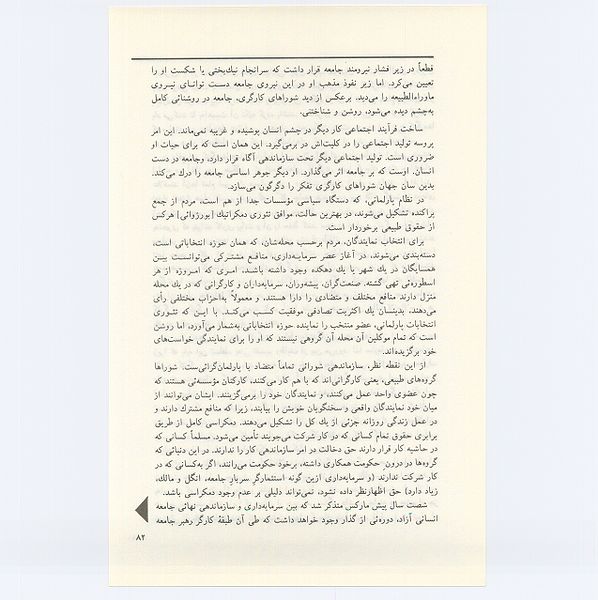 قطعاً در زیر فشار نیرومند جامعه قرار داشت که سرانجام نیك‌بختی یا شکست او را
تعیین می‌کرد. اما زیر نفوذ مذهب او در این نیروی جامعه دست توانای نیروی
ماوراءالطبیعه را می‌دید. برعکس از دید شوراهای کارگری، جامعه در روشنائی کامل
به‌چشم دیده می‌شود، روشن و شناختنی.
ساخت فرآیند اجتماعی کار دیگر در چشم انسان پوشیده و غریبه نمی‌ماند. این امر
پروسه تولید اجتماعی را در کلیت‌اش در برمی‌گیرد. این همان است که برای حیات او
ضروری است. تولید اجتماعی دیگر تحت سازماندهی آگاه قرار دارد، وجامعه در دست
انسان. اوست که بر جامعه اثر می‌گذارد. او دیگر جوهر اساسی جامعه را درك می‌کند.
بدین سان جهان شوراهای کارگری تفکر را دگرگون می‌سازد.
در نظام پارلمانی، که دستگاه سیاسی مؤسسات جدا از هم است، مردم از جمع
پراکنده تشکیل می‌شوند، در بهترین حالت، موافق تئوری دمکراتیك [بورژوائی] هرکس
از حقوق طبیعی برخوردار است.
برای انتخاب نمایندگان، مردم برحسب محله‌شان، که همان حوزه انتخاباتی است،
دسته‌بندی می‌شوند. در آغاز عصر سرمایه‌داری، منافع مشترکی می‌توانست بین
همسایگان در یك شهر یا یك دهکده وجود داشته باشد، امری که امروزه از هر
اسطوره‌ئی تهی گشته. صنعت‌گران، پیشه‌وران، سرمایه‌داران و کارگرانی که در یك محله
منزل دارند منافع مختلف و متضادی را دارا هستند، و معمولاً به‌احزاب مختلفی رأی
می‌دهند، بدینسان یك اکثریت تصادفی موفقیت کسب می‌کند. با این که تئوری
انتخابات پارلمانی، عضو منتخب را نماینده حوزه انتخاباتی به‌شمار می‌آورد، اما روشن
است که تمام موکلین آن محله آن گروهی نیستند که او را برای نمایندگی خواست‌های
خود برگزیده‌اند.
از این نقطه نظر، سازماندهی شورائی تماماً متضاد با پارلمان‌گرائی‌ست. شوراها
گروه‌های طبیعی، یعنی کارگرانی‌اند که با هم کار می‌کنند، کارکنان مؤسسه‌ئی هستند که
چون عضوی واحد عمل می‌کنند، و نمایندگان خود را برمی‌گزینند. ایشان می‌توانند از
میان خود نمایندگان واقعی و سخنگویان خویش را بیابند، زیرا که منافع مشترك دارند و
در عمل زندگی روزانه جزئی از یك کل را تشکیل می‌دهند. دمکراسی کامل از طریق
برابری حقوق تمام کسانی که در کار شرکت می‌جویند تأمین می‌شود. مسلماً کسانی که
در حاشیه کار قرار دارند حق دخالت در امر سازماندهی کار را ندارند. در این دنیائی که
گروه‌ها در درون حکومت همکاری داشته، برخود حکومت می‌رانند، اگر به‌کسانی که در
کار شرکت ندارند (و سرمایه‌داری ازین گونه استثمارگر سربار جامعه، انگل و مالك،
زیاد دارد) حق اظهارنظر داده نشود، نمی‌تواند دلیلی بر عدم وجود دمکراسی باشد.
شصت سال پیش مارکس متذکر شد که بین سرمایه‌داری و سازماندهی نهائی جامعه
انسانی آزاد، دوره‌ئی از گذار وجود خواهد داشت که طی آن طبقهٔ کارگر رهبر جامعه
۸۲